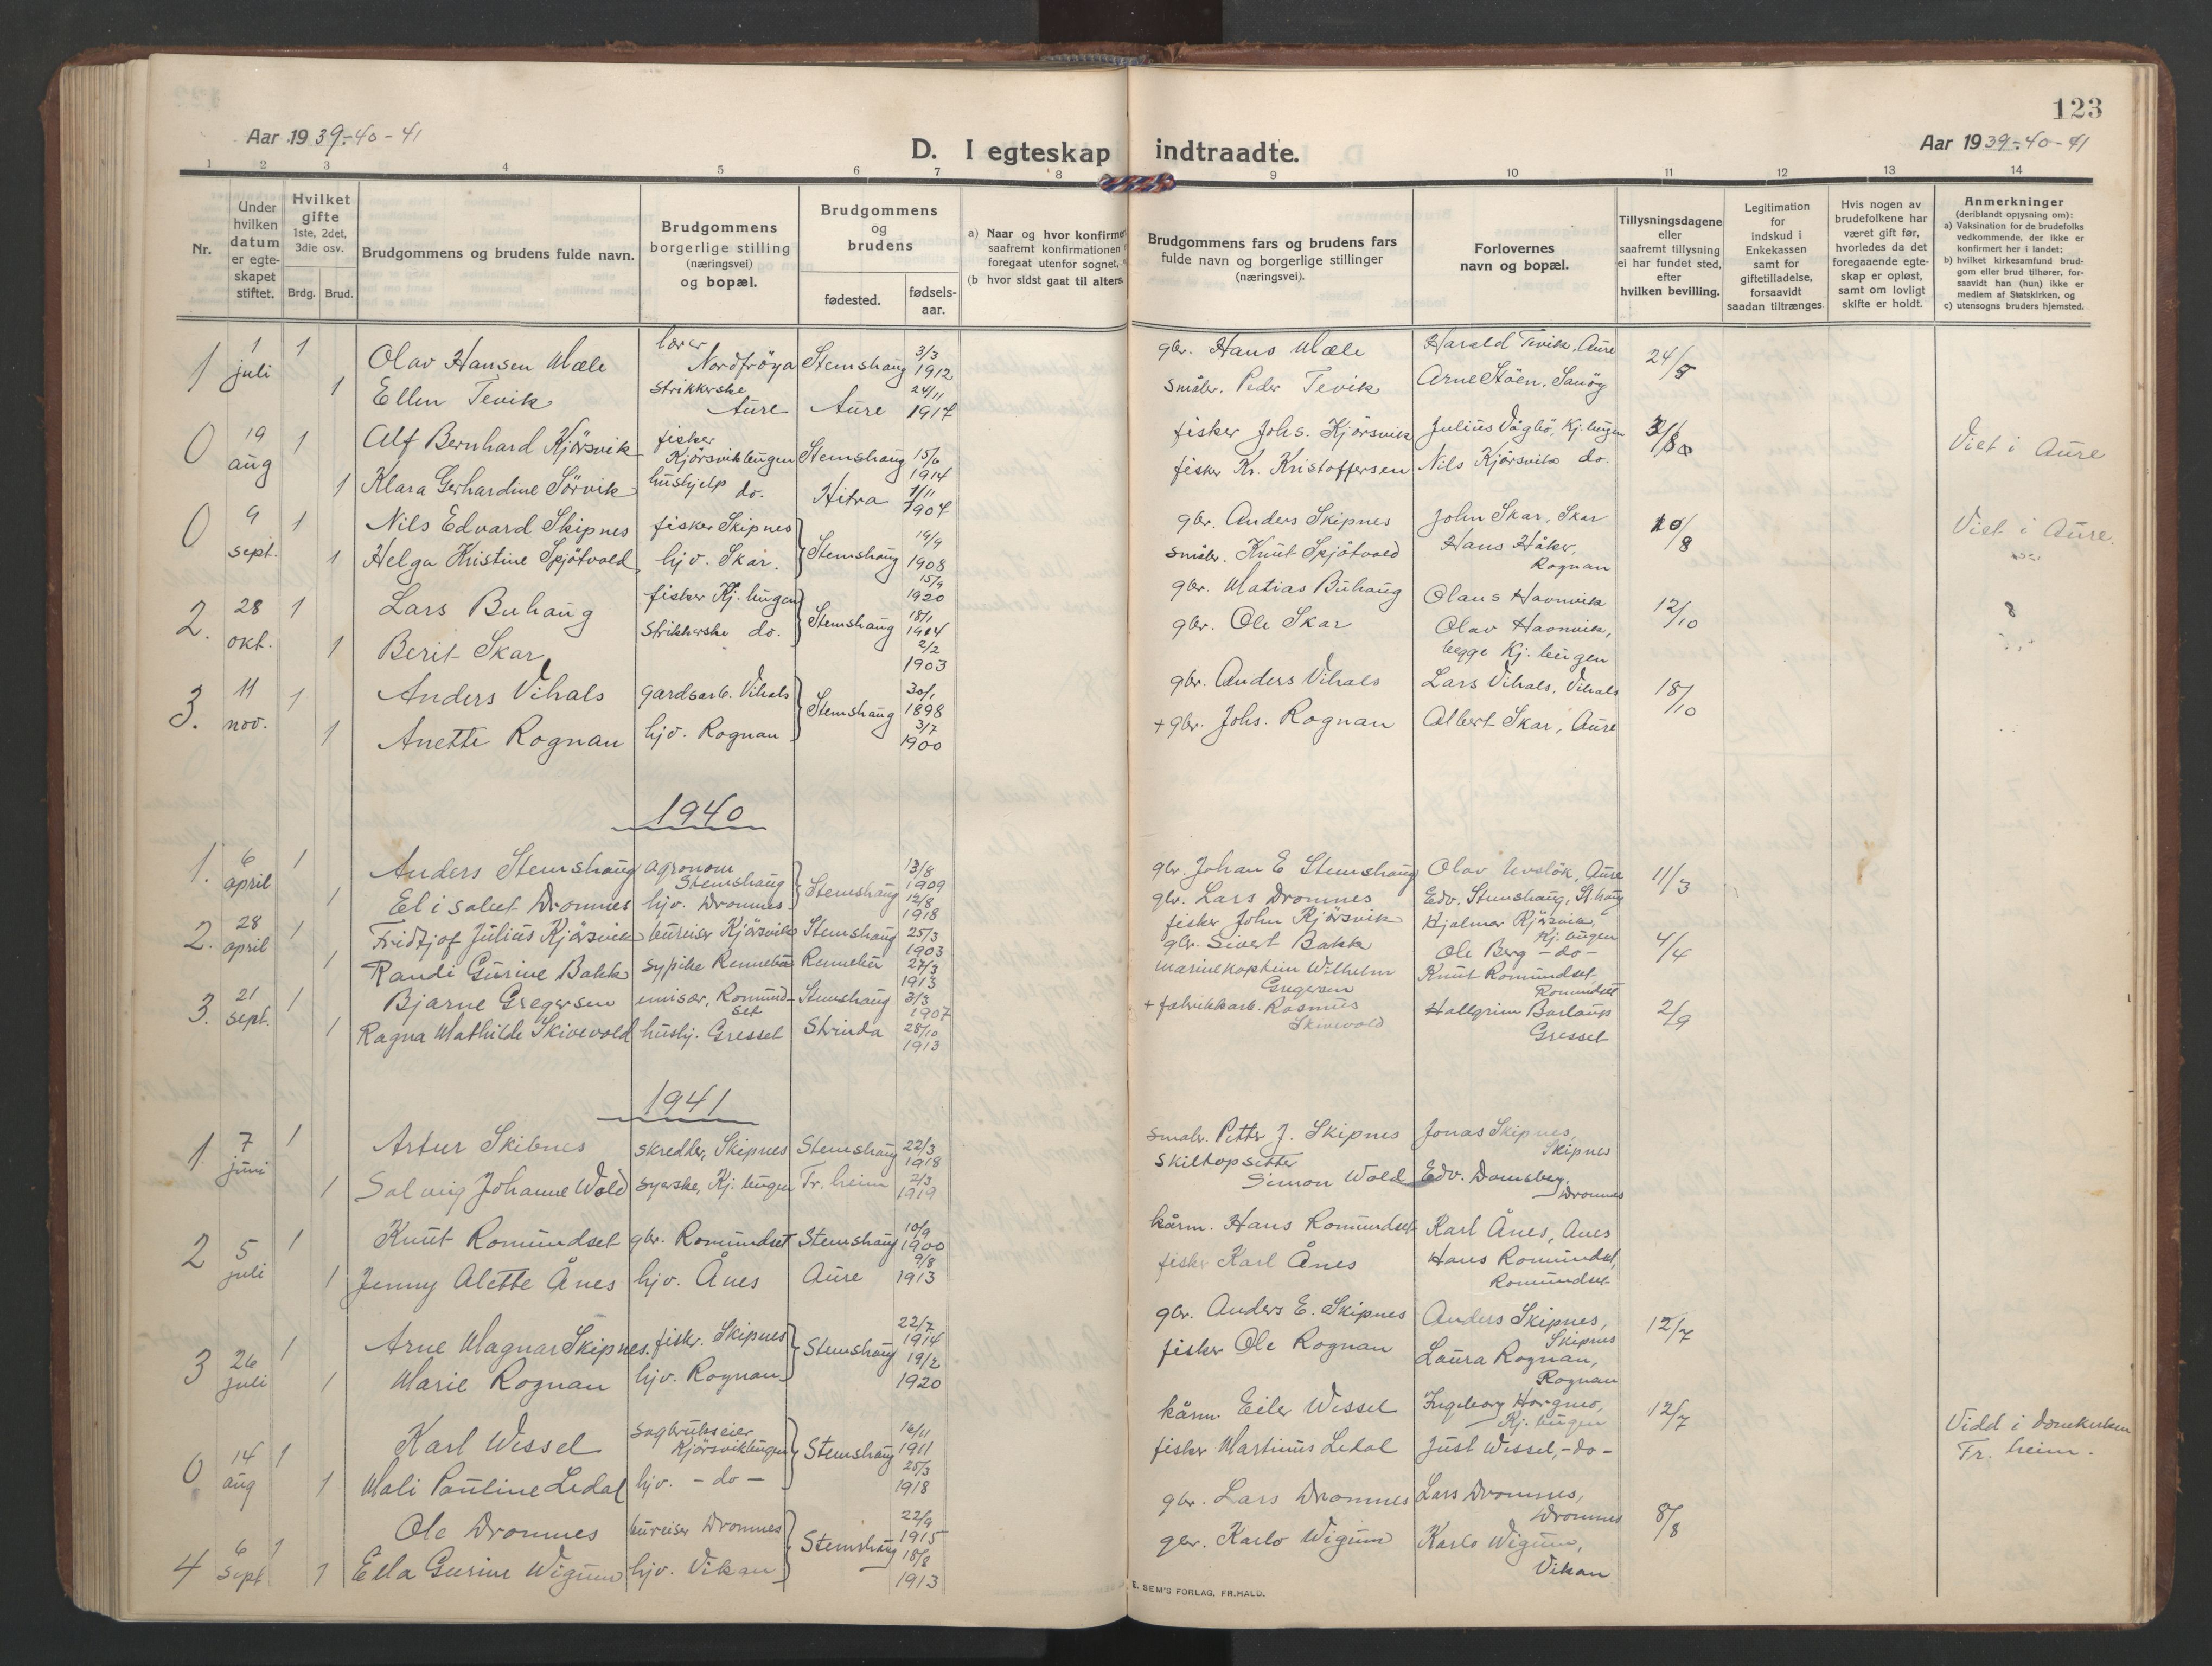 123
Aar 1939-40-41
D. I egteskap indtraadte.
Aar 1939-40-41
1 2 3 4 5 6 7 8 9 10 11 12 13 14
Nr.
Under hvilken datum er egteskapet stiftet.
Hvilket gifte 1ste, 2det, 3die osv.
Brdg. Brud.
Brudgommens og brudens fulde navn.
Brudgommens borgerlige stilling (næringsvei) og bopæl.
Brudgommens og brudens
fødested.
fødselsaar.
a) Naar og hvor konfirmert
saafremt konfirmationen
foregaat utenfor sognet,
(b hvor sidst gaat til alters
Brudgommens fars og brudens fars
fulde navn og borgerlige stillinger
(næringsvei).
Forlovernes
navn og bopæl.
Tillysningsdagene
eller
saafremt tillysning
ei har fundet sted,
efter
hvilken bevilling.
Legitimation
for
indskud i
Enkekassen
samt for
giftetilladelse,
forsaavidt
saadan tiltrænges.
Hvis nogen av
brudefolkene har
været gift før,
hvorledes da det
foregaaende egteskap er opløst,
samt om lovligt
skifte er holdt.
Anmerkninger
(deriblandt oplysning om):
a) Vaksination for de brudefolks
vedkommende, der ikke er
konfirmert her i landet;
b) hvilket kirkesamfund brudgom eller brud tilhører, forsaavidt han (hun) ikke er
medlem af Statskirken, og
c) utensogns bruders hjemsted.
1 1 juli 1 Olav Hansen Mæle lærer Nordfröya Stemshaug 3/3 1912 gbr. Hans Mæle Harald Tevik, Aure 24/5
1 Ellen Tevik strikkerske Aure Aure 24/11 1917 småbr. Peder Tevik Arne Stöen, Sanöy
0 19 aug 1 Alf Bernhard Kjörsvik fisker Kjörsvikbugen Stemshaug 15/6 1914 fisker Johs. Kjörsvik Julius Vågbö, Kj. bugen Viet i Aure
1 Klara Gerhardine Sörvik hushjelp do. Hitra 7/11 1904 fisker Kr. Kristoffersen Nils Kjörsvik do.
0 9 sept. 1 Nils Edvard Skipnes fisker Skipnes Stemshaug 19/9 1908 gbr. Anders Skipnes John Skar, Skar 10/8 Viet i Aure.
1 Helga Kristine Spjötvold hjv. Skar. 15/9 1920 småbr. Knut Spjötvold Hans Håker, Rognan
2. 28 okt. 1 Lars Buhaug fisker Kj. bugen Stemshaug 18/1 1904 gbr. Matias Buhaug Olaus Havnvik 12/10
1 Berit Skar strikkerske do. 2/2 1903 gbr. Ole Skar Olav Havnvik, begge Kj. bugen
3. 11 nov. 1 Anders Vihals gardsarb. Vihals Stemshaug 30/1 1898 gbr. Anders Vihals Lars Vihals, Vihals 18/10
1 Anette Rognan hjv. Rognan 3/7 1900 + gbr. Johs. Rognan Albert Skar, Aure
1940
1. 6 april 1 Anders Stemshaug agronom Stemshaug Stemshaug 13/8 1909 gbr. Johan E Stemshaug Olav Uvslök, Aure 11/3
1 Elisabet Dromnes hjv. Dromnes 12/8 1918 gbr. Lars Dromnes Edv. Stemshaug, St.haug
2. 28 april 1 Fridtjof Julius Kjörsvik bureiser Kjörsvik Stemshaug 25/3 1903 fisker John Kjörsvik Hjalmar Kjörsvik, Kj. bugen 4/4
1 Randi Gurine Bakk sypike Rennebu Rennebu 27/3 1913 gbr. Sivert Bakk Ole Berg -do-
3. 21 sept. 1 Bjarne Gregersen emisær, Romundset Stemshaug 3/3 1907 marinekaptein Wilhelm Gregersen Knut Romundset, Romundset 2/9
1 Ragna Mathilde Skivevold hushj. Gresset Strinda 28/10 1913 + fabrikkarb. Rasmus Skivevold Hallgrim Barlaup Gresset
1941
1 7 juni 1 Artur Skibnes skredder, Skipnes Stemshaug 22/3 1918 småbr. Petter J. Skipnes Jonas Skipnes, Skipnes
1 Solveig Johanne Wold syerske, Kj. bugen Fr. heim 2/3 1919 skiltopsetter Simon Wold Edv. Domsberg, Dromnes
2 5 juli 1 Knut Romundset gbr. Romundset Stemshaug 10/9 1900 kårm. Hans Romundset Karl Ånes, Anes
1 Jenny Alette Ånes hjv. Ånes Aure 9/8 1913 fisker Karl Ånes Hans Romundset, Romundset
3 26 juli 1 Arne Magnar Skipnes. fiskr. Skipnes Stemshaug 22/7 1914 gbr. Anders E. Skipnes Anders Skipnes, Skipnes 12/7
1 Marie Rognan hjv. Rognan 19/2 1920 fisker Ole Rognan Laura Rognan, Rognan
0 14 aug 1 Karl Wessel sagbrukseier Kjörsvikbugen Stemshaug 16/11 1911 kårm. Eiler Wessel Ingeborg Horgmo, Kj. bugen 12/7 Vidd i domekirken Fr. heim.
1 Mali Pauline Ledal hjv. - do - 25/3 1918 fisker Martinus Ledal Just Wessel, -do-
4 6 sept 1 Ole Dromnes bureiser Dromnes Stemshaug 22/9 1915 gbr. Lars Dromnes Lars Dromnes, Dromnes 8/8
1 Ella Gurine Wigum hjv. Vikan 18/8 1913 gbr. Karlo Wigum Karlo Wigum, Vikan
E. SEM'S FORLAG, FR.HALD.